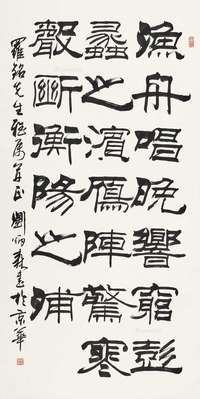 漁舟唱晚響窮彭
蠡之濱鴈陣驚寒
聲斷衡陽之浦
羅銘先生雅屬正劉炳森書於京華